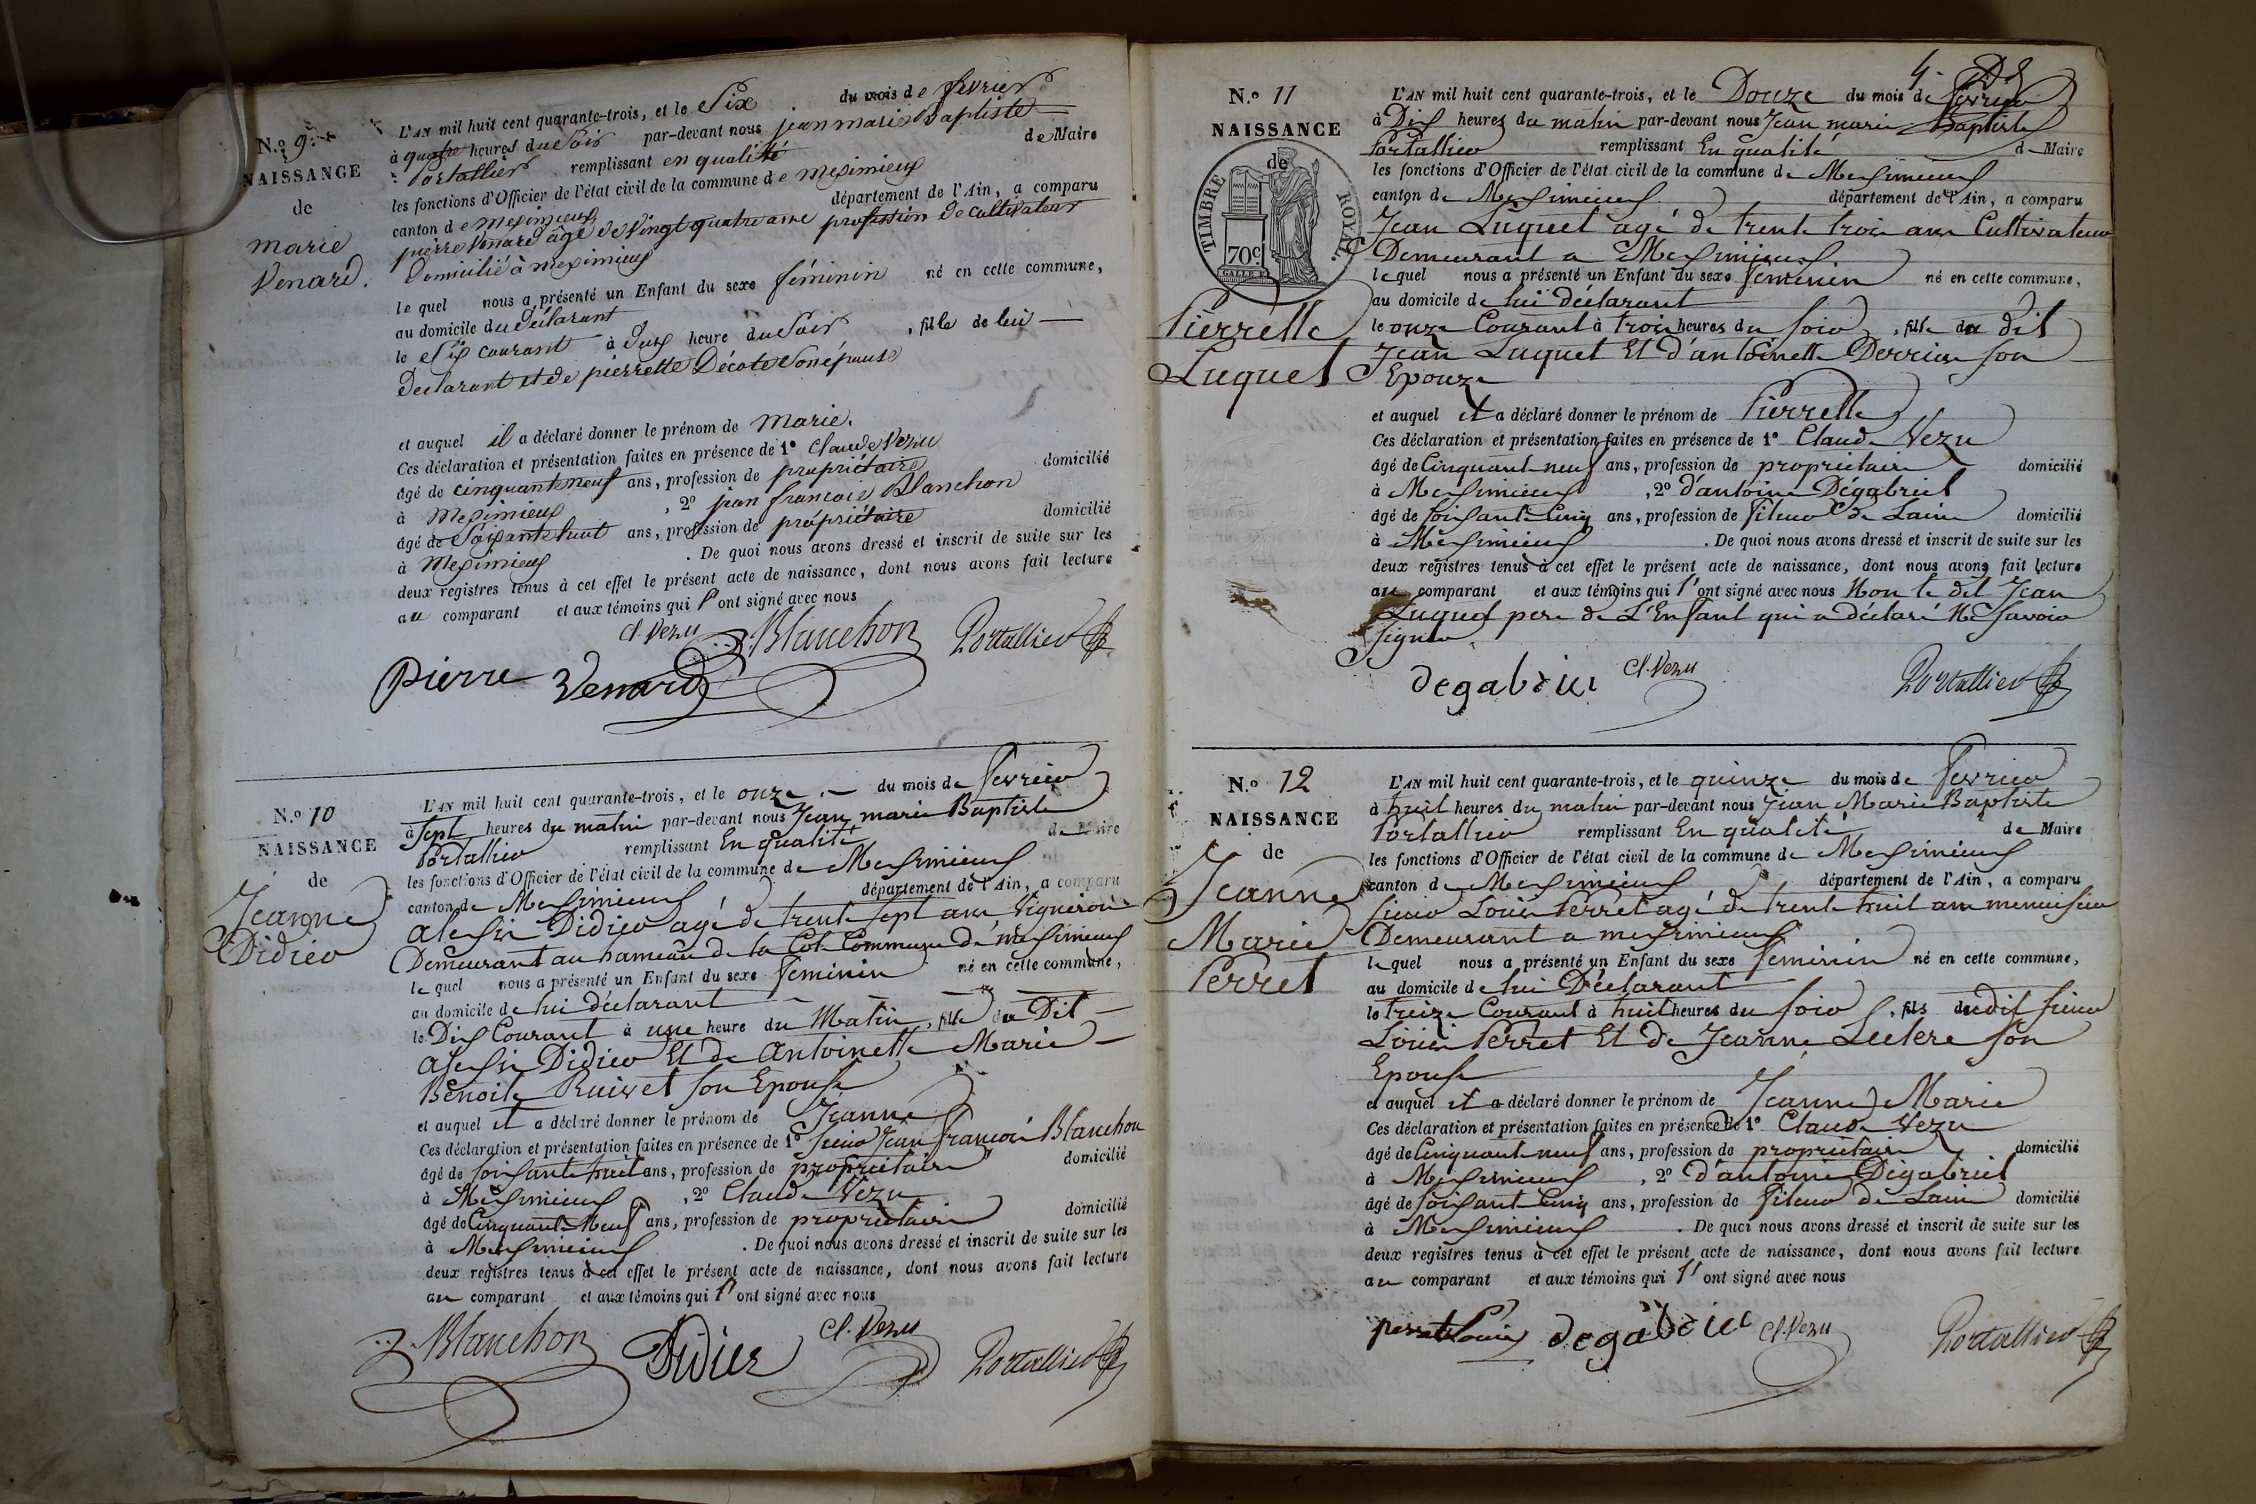 N.o 9.
NAISSANCE
de
marie
Venard.
L'AN mil huit cent quarante-trois, et le Six du mois de fevrier
à quatre heures du Soir par-devant nous jean marie Baptiste
Portallier remplissant en qualité de Maire
les fonctions d'Officier de l'état civil de la commune de meximieux
canton de meximieux département de l'Ain, a comparu
pierre Venard âgé de Vingt quatre ans profession de cultivateur
Domicilié à meximieux
le quel nous a présenté un Enfant du sexe féminin né en cette commune,
au domicile du Déclarant
le Six courant à Deux heure du Soir, fille de lui
Declarant et de pierrette Décote Son épouse
et auquel il a déclaré donner le prénom de marie.
Ces déclaration et présentation faites en présence de 1o Claude Vezu
âgé de cinquante neuf ans, profession de propriétaire domicilié
à meximieux, 2o jean francois Blanchon
âgé de Soixante huit ans, profession de propriétaire domicilié
à Meximieux. De quoi nous avons dressé et inscrit de suite sur les
deux registres tenus à cet effet le présent acte de naissance, dont nous avons fait lecture
au comparant et aux témoins qui l'ont signé avec nous
Cl. Vezu J. Blanchon Portallier
pierre Venard
N.o 10
NAISSANCE
de
Jeanne
Didier
L'AN mil huit cent quarante-trois, et le onze du mois de fevrier
à Sept heures du matin par-devant nous Jean marie Baptiste
Portallier remplissant En qualité de Maire
les fonctions d'Officier de l'état civil de la commune de Meximieux
canton de Meximieux département de l'Ain, a comparu
alexis Didier agé de trente Sept ans Vigneron
Demeurant au hameau de la Cote Commune de meximieux
le quel nous a présenté un Enfant du sexe feminin né en cette commune,
au domicile de lui déclarant
le Dix Courant à une heure du Matin, fille du Dit
alexis Didier Et de Antoinette Marie
Benoite Ruivet son Epouse
et auquel il a déclaré donner le prénom de Jeanne
Ces déclaration et présentation faites en présence de 1o Sieur Jean francois Blanchon
âgé de soixante huit ans, profession de propriétaire domicilié
à Meximieux, 2o Claude Vezu
âgé de Cinquante Neuf ans, profession de propriétaire domicilié
à Meximieux. De quoi nous avons dressé et inscrit de suite sur les
deux registres tenus à cet effet le présent acte de naissance, dont nous avons fait lecture
au comparant et aux témoins qui l'ont signé avec nous
J. Blanchon Didier Cl. Vezu Portallier
4.
N.o 11
NAISSANCE
de
TIMBRE ROYAL.
70c.
Pierrette
Luquet
L'AN mil huit cent quarante-trois, et le Douze du mois de fevrier
à Dix heures du matin par-devant nous Jean marie Baptiste
Portallier remplissant En qualité de Maire
les fonctions d'Officier de l'état civil de la commune de Meximieux
canton de Meximieux département de l'Ain, a comparu
Jean Luquet agé de trente trois ans Cultivateur
Demeurant a Meximieux
le quel nous a présenté un Enfant du sexe feminin né en cette commune,
au domicile de lui déclarant
le onze Courant à trois heures du soir, fille du dit
Jean Luquet Et d'antoinette Derrier son
Epouze
et auquel il a déclaré donner le prénom de Pierrette
Ces déclaration et présentation faites en présence de 1o Claude Vezu
âgé de Cinquante neuf ans, profession de propriétaire domicilié
à Meximieux, 2o d'antoine Dégabriel
âgé de soixante Cinq ans, profession de fileur de Laine domicilié
à Meximieux. De quoi nous avons dressé et inscrit de suite sur les
deux registres tenus à cet effet le présent acte de naissance, dont nous avons fait lecture
au comparant et aux témoins qui l'ont signé avec nous Non le dit Jean
Luquet pere de L'Enfant qui a déclaré Ne Savoir
signer
degabriel Cl. Vezu Portallier
N.o 12
NAISSANCE
de
Jeanne
Marie
Perret
L'AN mil huit cent quarante-trois, et le quinze du mois de fevrier
à huit heures du matin par-devant nous Jean Marie Baptiste
Portallier remplissant En qualité de Maire
les fonctions d'Officier de l'état civil de la commune de Meximieux
canton de Meximieux département de l'Ain, a comparu
sieur Louis Perret agé de trente huit ans menuisier
Demeurant a meximieux
le quel nous a présenté un Enfant du sexe feminin né en cette commune,
au domicile de lui Déclarant
le treize Courant à huit heures du soir, fils dudit sieur
Louis Perret Et de Jeanne Leclere son
Epouse
et auquel il a déclaré donner le prénom de Jeanne Marie
Ces déclaration et présentation faites en présence de 1o Claude Vezu
âgé de Cinquante neuf ans, profession de propriétaire domicilié
à Meximieux, 2o d'antoine Dégabriel
âgé de soixante Cinq ans, profession de fileur de Laine domicilié
à Meximieux. De quoi nous avons dressé et inscrit de suite sur les
deux registres tenus à cet effet le présent acte de naissance, dont nous avons fait lecture
au comparant et aux témoins qui l'ont signé avec nous
perret Louis degabriel Cl. Vezu Portallier